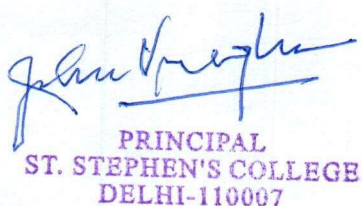 John
PRINCIPAL
ST. STEPHEN'S COLLEGE
DELHI-110007